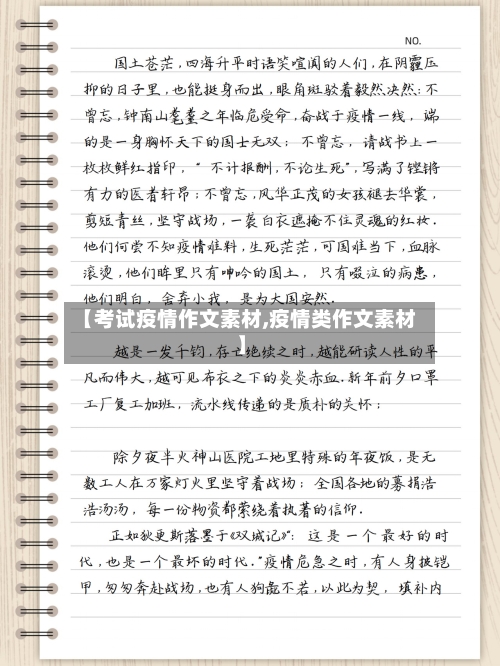 NO.
国土苍茫，四海升平时语笑喧阗的人们，在阴霾压
抑的日子里，也能挺身而出，眼角斑驳着毅然决然：不
曾忘，钟南山耄耋之年临危受命，奋战于疫情一线，端
的是一身胸怀天下的国士无双；不曾忘，请战书上一
枚枚鲜红指印，“不计报酬，不论生死”，写满了铿锵
有力的医者轩昂；不曾忘，风华正茂的女孩褪去华裳，
剪短青丝，坚守战场，一袭白衣遮掩不住灵魂的红妆.
他们何尝不知疫情难料，生死茫茫，可国难当下，血脉
滚烫，他们眸里只有呻吟的国土，只有啜泣的病患，
他们明白，舍弃小我，是为大国安然.
【考试疫情作文素材,疫情类作文素材
】
越是一发千钧，存亡绝续之时，越能研读人性的平
凡而伟大，越可见布衣之下的炎炎赤血.新年前夕口罩
工厂复工加班，流水线传递的是质朴的关怀；
除夕夜半火神山医院工地里特殊的年夜饭，是无
数工人在万家灯火里坚守着战场；全国各地的募捐浩
浩汤汤，每一份物资都萦绕着执著的信仰.
正如狄更斯落墨于《双城记》：这是一个最好的时
代，也是一个最坏的时代.”疫情危急之时，有人身披铠
甲，匆匆奔赴战场，也有人狗彘不若，以此为契，填补内